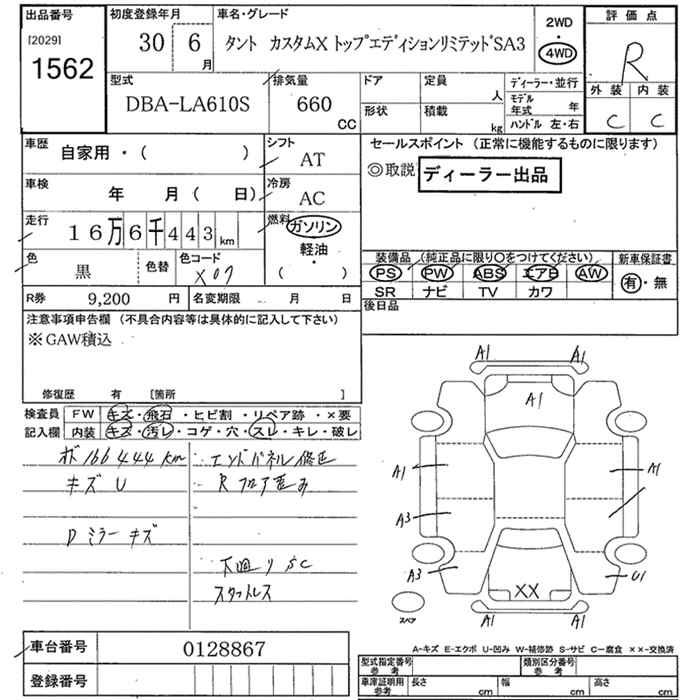 出品番号 初度登録年月 車名・グレード 2WD 評価点
[2029] 1562 30 6月 タント カスタムX トップエディションリミテッドSA3 ・ 4WD R
型式 排気量 ドア 定員 ディーラー・並行 外装 内装
DBA-LA610S 660 CC 形状 積載 人 kg モデル年式 年 ハンドル 左・右 C C
車歴 自家用・( ) シフト AT セールスポイント (正常に機能するものに限ります)
◎取説 ディーラー出品
車検 年 月( 日) 冷房 AC
走行 16万6千443km 燃料 ガソリン
軽油・( )
色 黒 色替 色コード X07
装備品 (純正品に限り○をつけてください) 新車保証書
PS PW ABS エアB AW 有・無
SR ナビ TV カワ
R券 9,200 円 名変期限 月 日 後日品
注意事項申告欄 (不具合内容等は具体的に記入して下さい)
※GAW積込
修復歴 有 [箇所 ]
検査員 FW キズ・飛石・ヒビ割・リペア跡・×要
記入欄 内装 キズ・汚レ・コゲ・穴・スレ・キレ・破レ
ボ166444km エンドパネル修正
キズU Rフロア歪み
Dミラーキズ
下廻りSC
スタットレス
A1 A1
A1
A1 A1
A3
A3 U1
XX
スペア A1 A1
車台番号 0128867
登録番号
A-キズ E-エクボ U-凹み W-補修跡 S-サビ C-腐食 ××-交換済
型式指定番号 参考 類別区分番号 参考
車庫証明用 参考 長さ cm 幅 cm 高さ cm